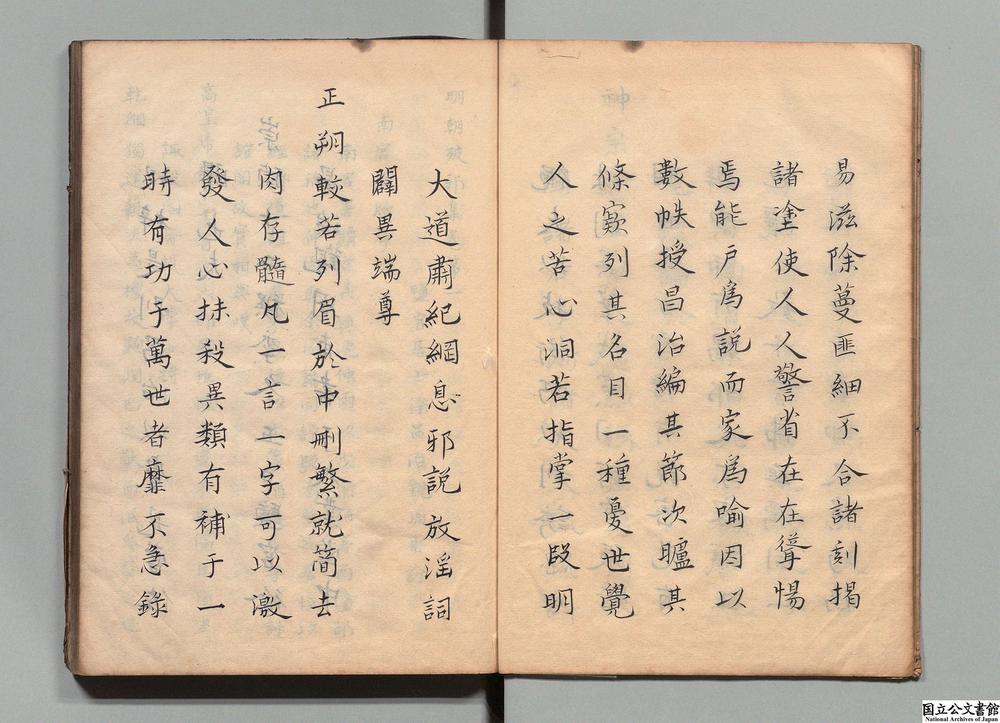 易滋除蔓匪細不合諸刻揭
諸塗使人人警省在在聳惕
焉能戶爲說而家爲喻因以
數帙授昌治編其節次臚其
條窾列其名目一種憂世覺
人之苦心洞若指掌一段明
大道肅紀綱息邪說放淫詞
闢異端尊
正朔較若列眉於中刪繁就簡去
肉存髓凡一言一字可以激
發人心抹殺異類有補于一
時有功于萬世者靡不急錄
国立公文書館
National Archives of Japan